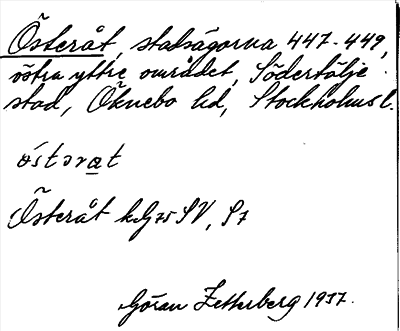 Österåt, stadsägorna 447-449,
östra yttre området, Södertälje
stad, Öknebo hd, Stockholms l.
östərat
Österåt kG75 SV, S7
Göran Zetterberg 1937.